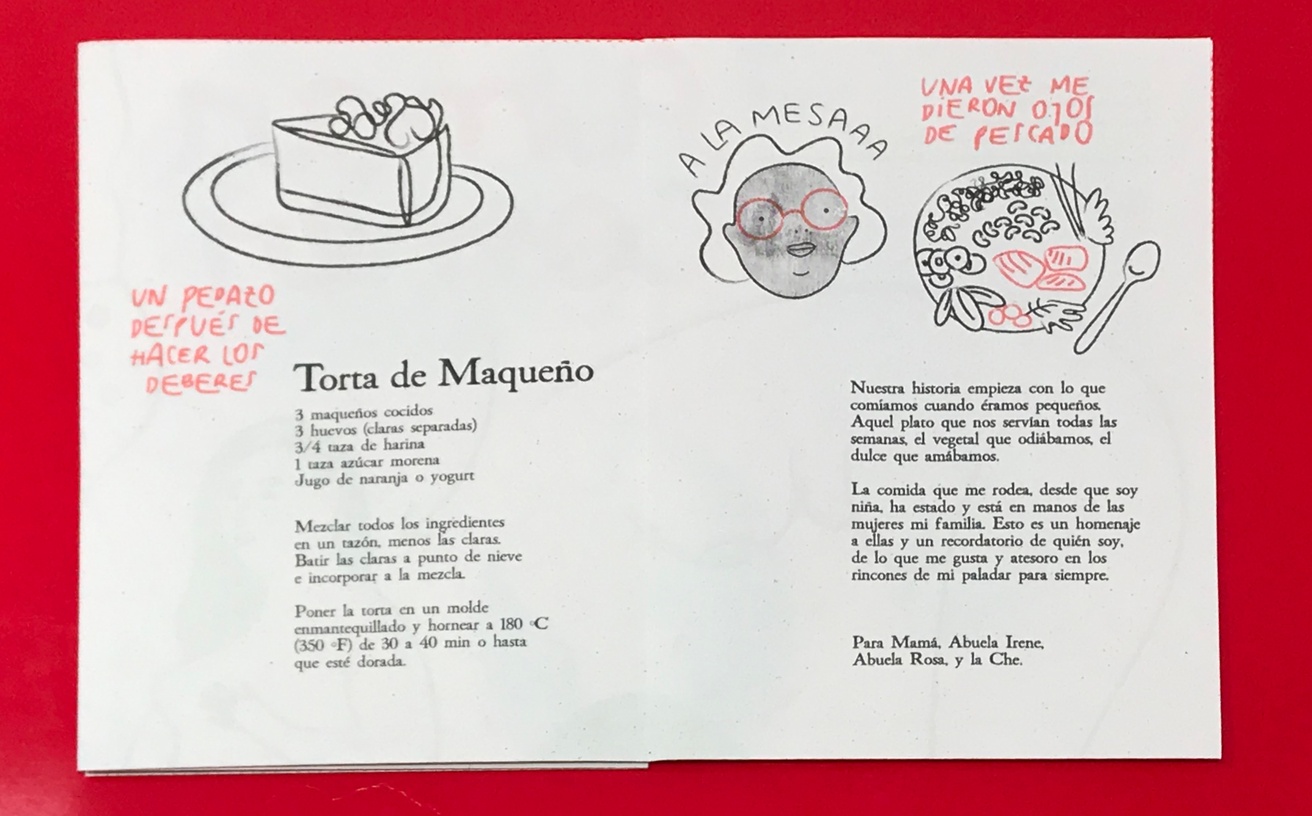 UN PEDAZO
DESPUÉS DE
HACER LOS
DEBERES
Torta de Maqueño
3 maqueños cocidos
3 huevos (claras separadas)
3/4 taza de harina
1 taza azúcar morena
Jugo de naranja o yogurt
Mezclar todos los ingredientes
en un tazón, menos las claras.
Batir las claras a punto de nieve
e incorporar a la mezcla.
Poner la torta en un molde
enmantequillado y hornear a 180 °C
(350 °F) de 30 a 40 min o hasta
que esté dorada.
A LA MESAAA
UNA VEZ ME
DIERON OJOS
DE PESCADO
Nuestra historia empieza con lo que
comíamos cuando éramos pequeños.
Aquel plato que nos servían todas las
semanas, el vegetal que odiábamos, el
dulce que amábamos.
La comida que me rodea, desde que soy
niña, ha estado y está en manos de las
mujeres mi familia. Esto es un homenaje
a ellas y un recordatorio de quién soy,
de lo que me gusta y atesoro en los
rincones de mi paladar para siempre.
Para Mamá, Abuela Irene,
Abuela Rosa, y la Che.